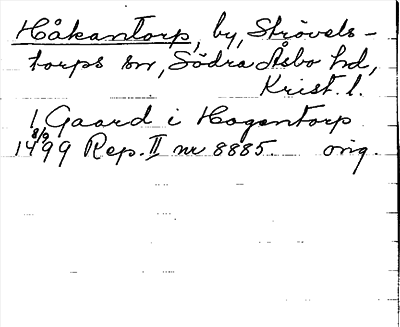 Håkantorp, by, Strövels-
torps sn, Södra Åsbo hd,
Krist. l.
1 Gaard i Hogentorp
8/9
1499 Rep. II nr 8885. orig.